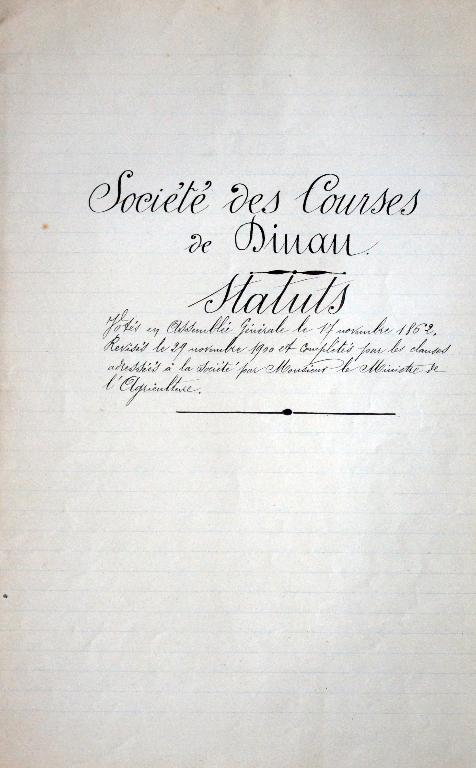 Société des Courses
de Dinan.
Statuts
Votés en Assemblée Générale le 17 novembre 1852.
Revisés le 29 novembre 1900 et Complétés par les clauses
adressées à la Société par Monsieur le Ministre de
l'Agriculture.